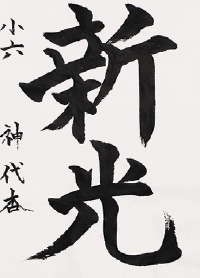 新光
小六 神代杏